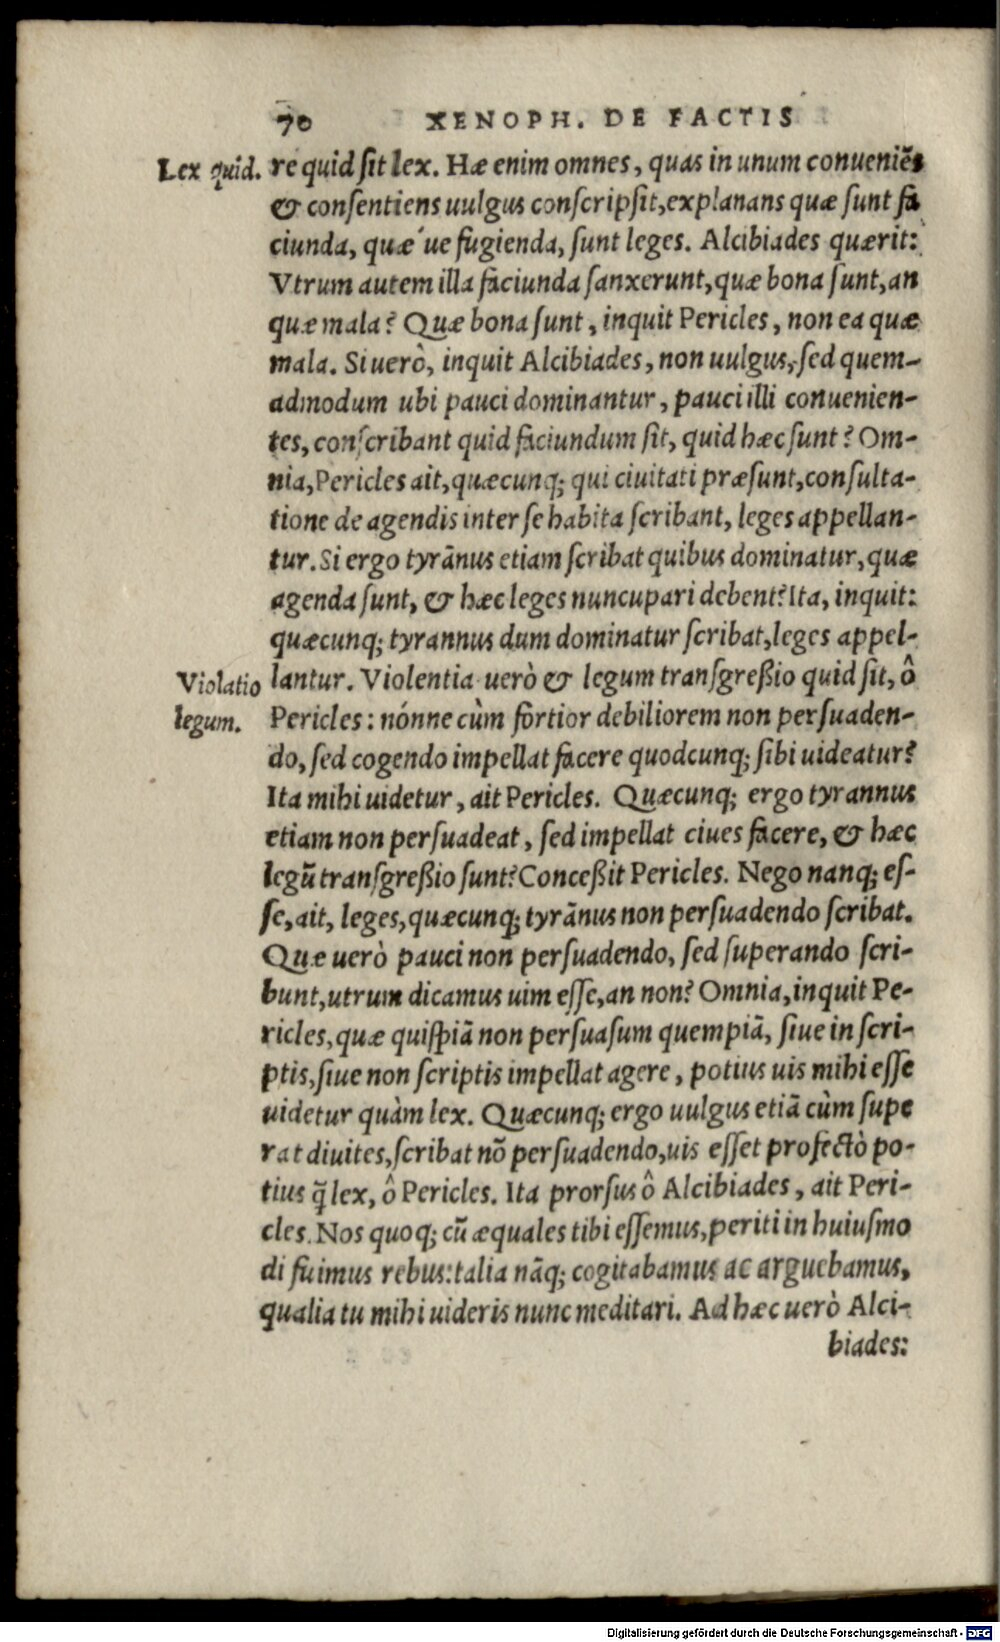 70 XENOPH. DE FACTIS
Lex quid. re quid ſit lex. Hæ enim omnes, quas in unum conueniẽs
& conſentiens uulgus conſcripſit, explanans quæ ſunt fa
ciunda, quæ ́ue fugienda, ſunt leges. Alcibiades quærit:
Vtrum autem illa faciunda ſanxerunt, quæ bona ſunt, an
quæ mala? Quæ bona ſunt, inquit Pericles, non ea quæ
mala. Si uerò, inquit Alcibiades, non uulgus, ſed quem-
admodum ubi pauci dominantur, pauci illi conuenien-
tes, conſcribant quid faciundum ſit, quid hæc ſunt? Om-
nia, Pericles ait, quæcunq; qui ciuitati præſunt, conſulta-
tione de agendis inter ſe habita ſcribant, leges appellan-
tur. Si ergo tyrãnus etiam ſcribat quibus dominatur, quæ
agenda ſunt, & hæc leges nuncupari debent? Ita, inquit:
quæcunq; tyrannus dum dominatur ſcribat, leges appel-
Violatio legum. lantur. Violentia uerò & legum tranſgreßio quid ſit, ô
Pericles: nónne cùm fortior debiliorem non perſuaden-
do, ſed cogendo impellat facere quodcunq; ſibi uideatur?
Ita mihi uidetur, ait Pericles. Quæcunq; ergo tyrannus
etiam non perſuadeat, ſed impellat ciues facere, & hæc
legũ tranſgreßio ſunt? Conceßit Pericles. Nego nanq; eſ-
ſe, ait, leges, quæcunq; tyrãnus non perſuadendo ſcribat.
Quæ uerò pauci non perſuadendo, ſed ſuperando ſcri-
bunt, utrum dicamus uim eſſe, an non? Omnia, inquit Pe-
ricles, quæ quiſpiã non perſuaſum quempiã, ſiue in ſcri-
ptis, ſiue non ſcriptis impellat agere, potius uis mihi eſſe
uidetur quàm lex. Quæcunq; ergo uulgus etiã cùm ſupe
rat diuites, ſcribat nõ perſuadendo, uis eſſet profectò po-
tius q̃ lex, ô Pericles. Ita prorſus ô Alcibiades, ait Peri-
cles. Nos quoq; cũ æquales tibi eſſemus, periti in huiuſmo
di fuimus rebus: talia nãq; cogitabamus ac arguebamus,
qualia tu mihi uideris nunc meditari. Ad hæc uerò Alci-
biades:
Digitalisierung gefördert durch die Deutsche Forschungsgemeinschaft - DFG